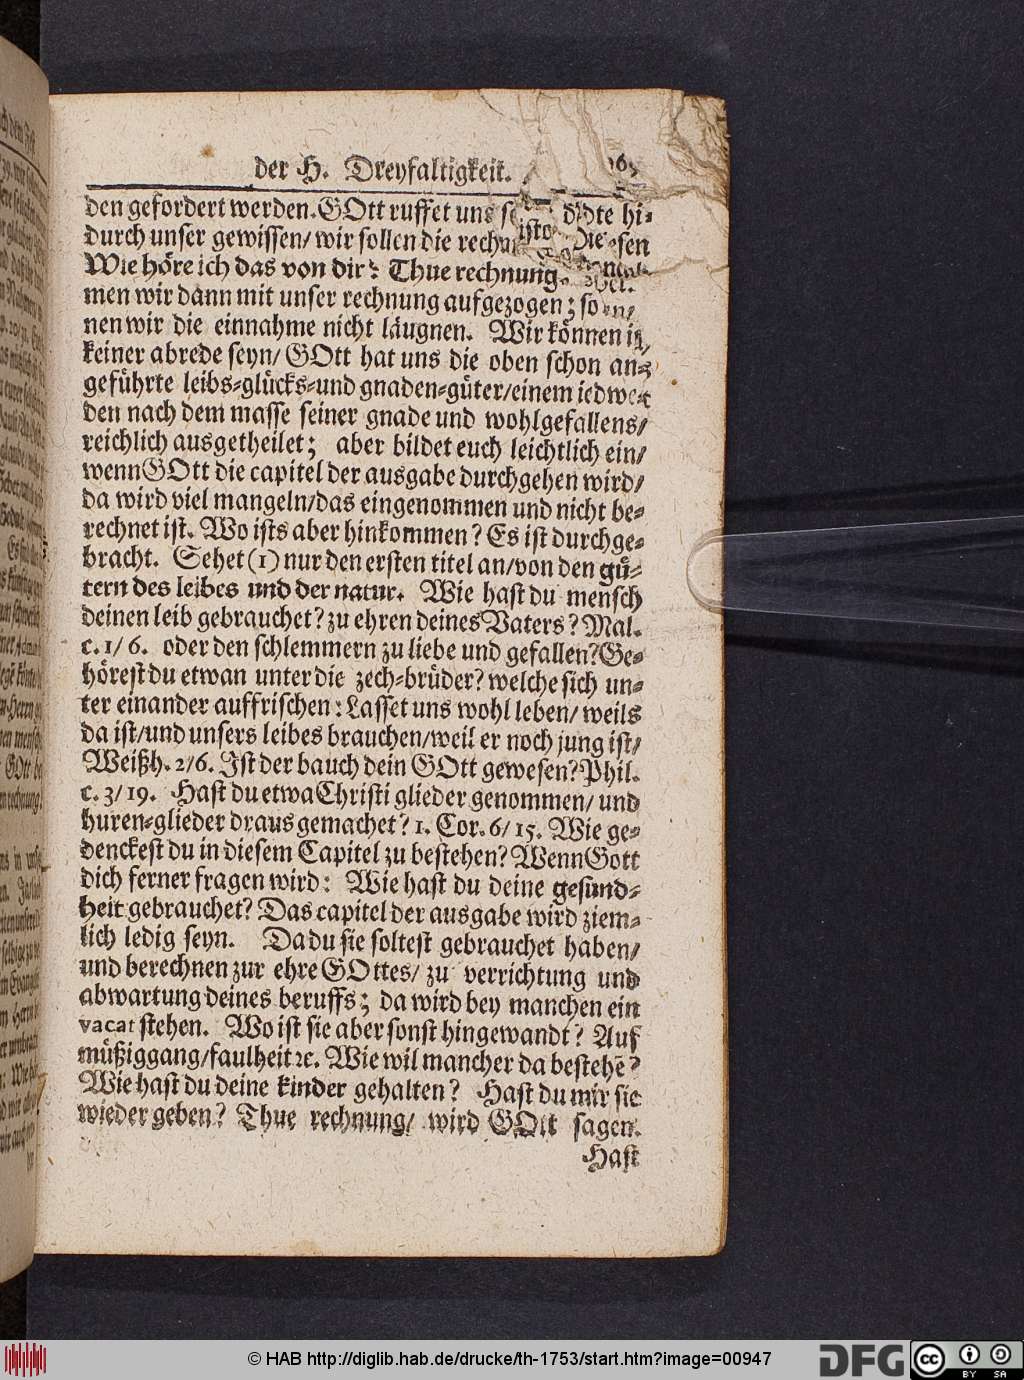 der H. Dreyfaltigkeit.
den gefordert werden. GOtt ruffet uns hi-
durch unser gewissen/ wir sollen die
Wie höre ich das von dir? Thue rechnung.
men wir dann mit unser rechnung aufgezogen; so
nen wir die einnahme nicht läugnen. Wir können in
keiner abrede seyn/ GOtt hat uns die oben schon an-
geführte leibs-glücks-und gnaden-güter/einem iedwe-
den nach dem masse seiner gnade und wohlgefallens/
reichlich ausgetheilet; aber bildet euch leichtlich ein/
wenn GOtt die capitel der ausgabe durchgehen wird/
da wird viel mangeln/das eingenommen und nicht be-
rechnet ist. Wo ists aber hinkommen? Es ist durchge-
bracht. Sehet (1) nur den ersten titel an/von den gü-
tern des leibes und der natur. Wie hast du mensch
deinen leib gebrauchet? zu ehren deines Vaters? Mal.
c. 1/6. oder den schlemmern zu liebe und gefallen? Ge-
hörest du etwan unter die zech-brüder? welche sich un-
ter einander auffrischen: Lasset uns wohl leben/ weils
da ist/und unsers leibes brauchen/weil er noch jung ist/
Weißh. 2/6. Ist der bauch dein GOtt gewesen? Phil.
c. 3/19. Hast du etwa Christi glieder genommen/ und
huren-glieder draus gemachet? 1. Cor. 6/15. Wie ge-
denckest du in diesem Capitel zu bestehen? Wenn Gott
dich ferner fragen wird: Wie hast du deine gesund-
heit gebrauchet? Das capitel der ausgabe wird ziem-
lich ledig seyn. Da du sie soltest gebrauchet haben/
und berechnen zur ehre GOttes/ zu verrichtung und
abwartung deines beruffs; da wird bey manchen ein
vacat stehen. Wo ist sie aber sonst hingewandt? Auf
müßiggang/faulheit ꝛc. Wie wil mancher da bestehē?
Wie hast du deine kinder gehalten? Hast du mir sie
wieder geben? Thue rechnung/ wird GOtt sagen.
Hast
© HAB http://diglib.hab.de/drucke/th-1753/start.htm?image=00947
DFG
cc BY SA